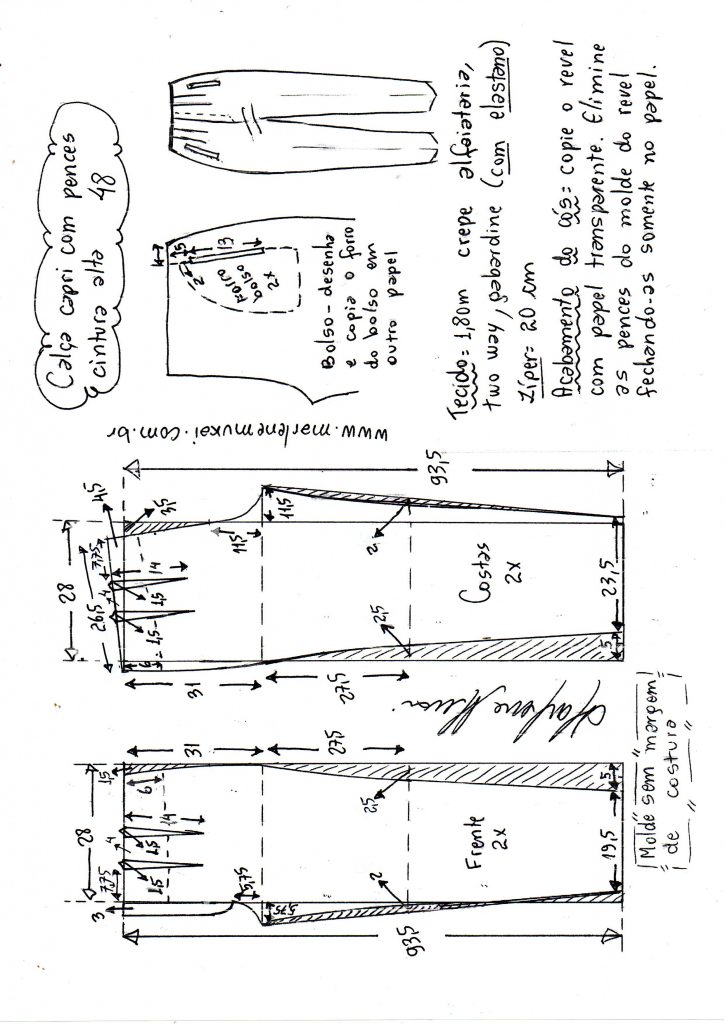 Calça capri com pences
cintura alta 48
1,5
13
2
Forro
bolso
2x
Bolso - desenha
e copia o forro
do bolso em
outro papel
Tecido: 1,80m crepe alfaiataria,
two way, gabardine (com elastano)
Zíper= 20 cm
Acabamento do cós= copie o revel
com papel transparente. Elimine
as pences do molde do revel
fechando-as somente no papel.
www.marlenemukai.com.br
28
26,5
7,75
4
4,5
3,5
14
1,5
1,5
6
31
27,5
11,5
11,5
93,5
2
2,5
Costas
2x
23,5
5
28
1,5
6
14
4
1,5
1,5
7,75
3
31
27,5
5,75
5,75
93,5
2,5
2
Frente
2x
19,5
5
Molde sem margem
de costura